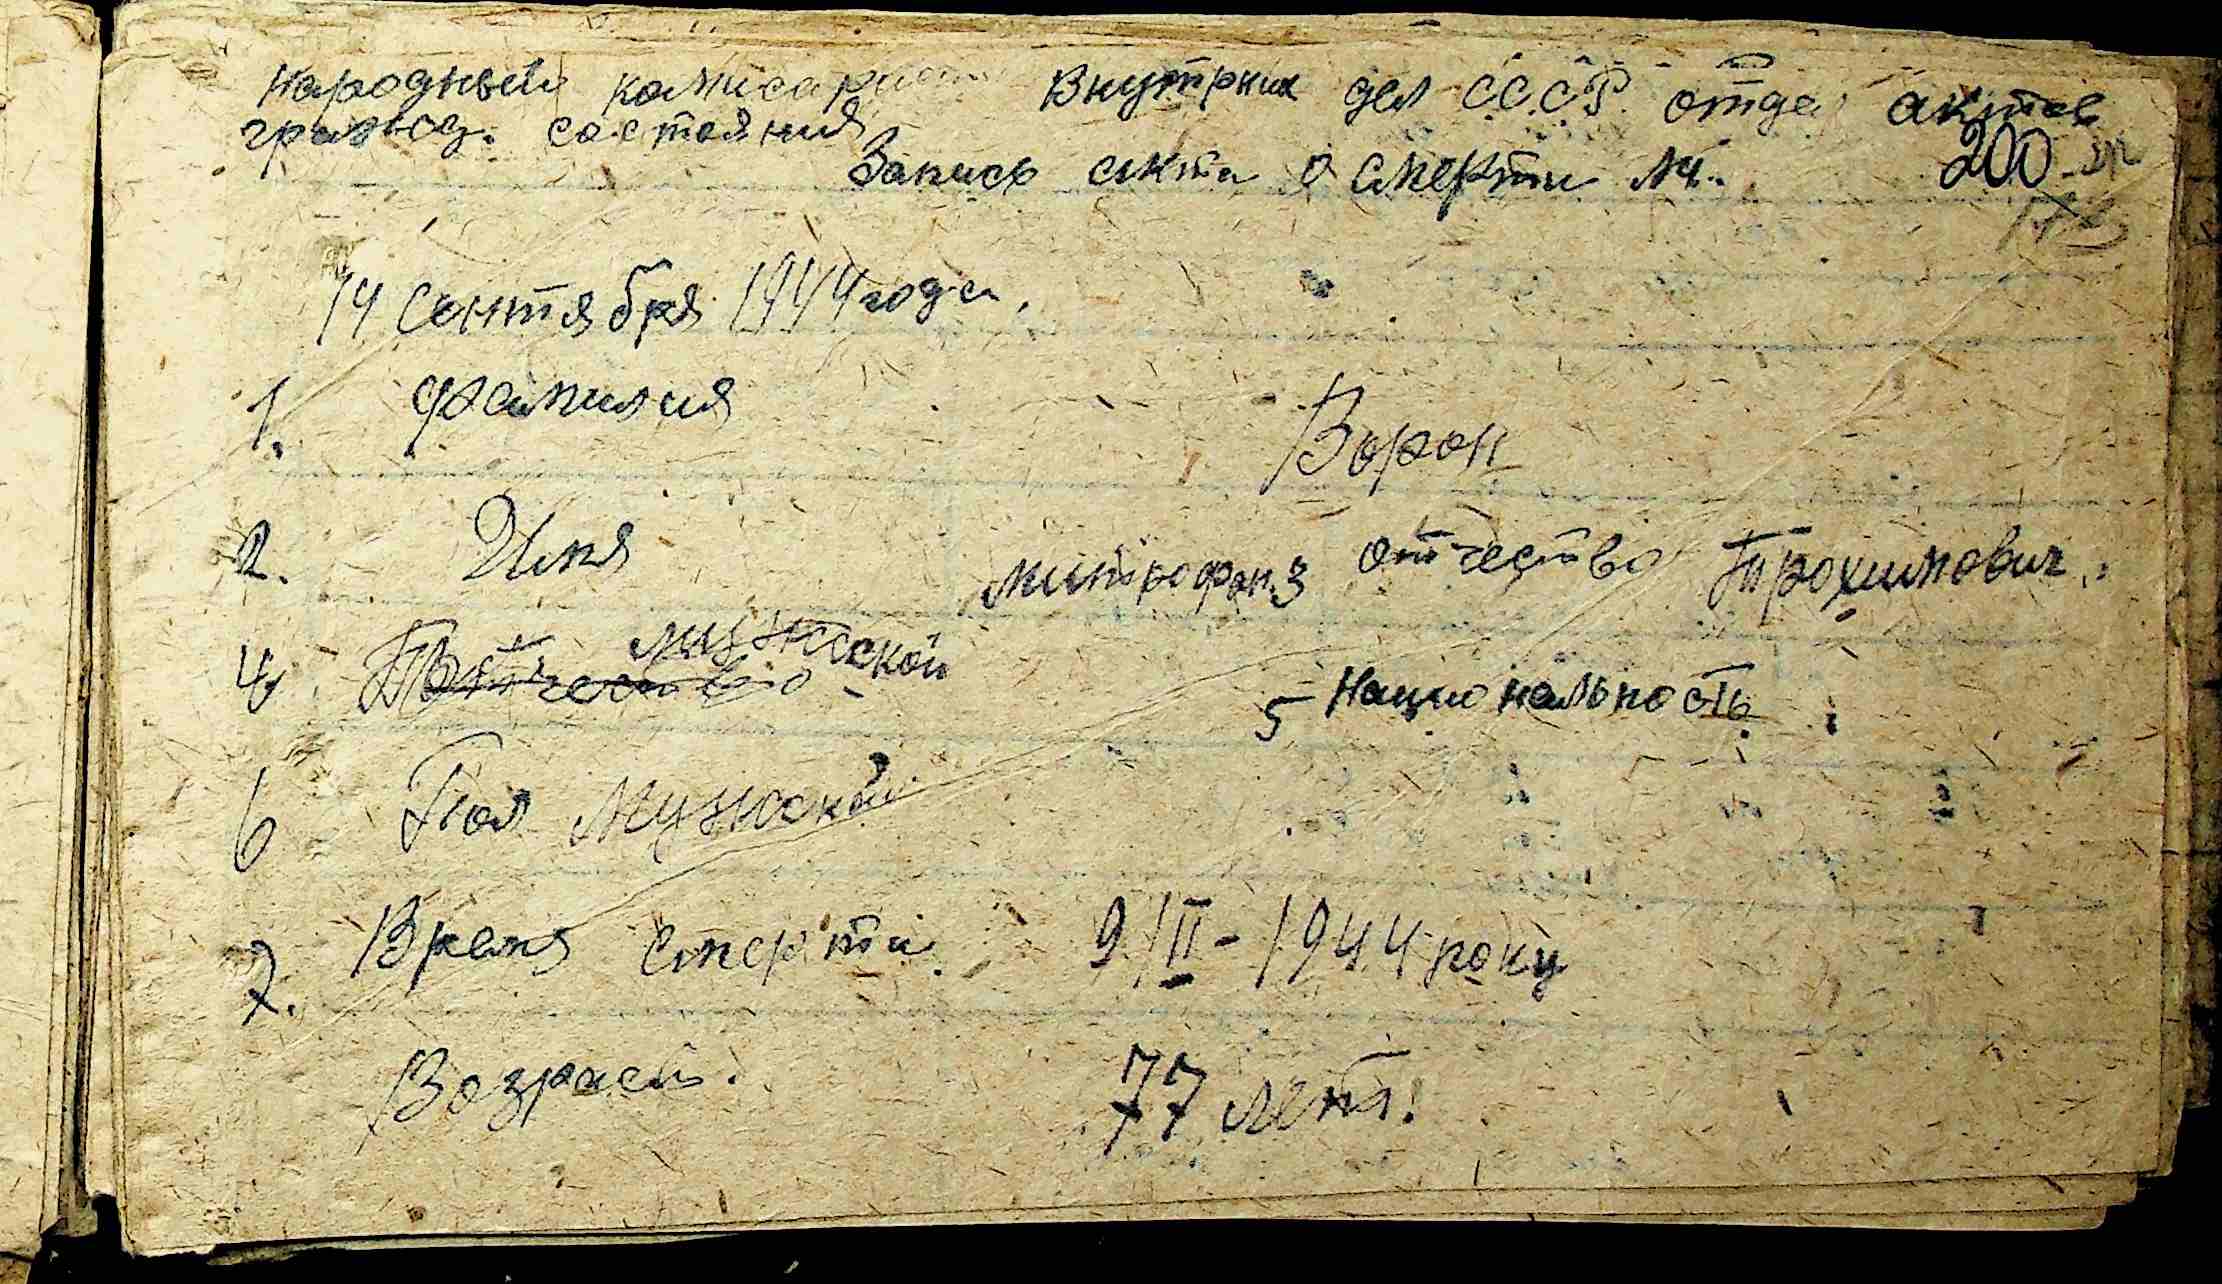 Народный комисариат Внутрник дел С.С.С.Р. отдел актов
гражод. состояния
Запись акта о смерти №. 200
14 Сентября 1944 года.
1. Фамилия Ворон
2. Имя Митрофан 3 отчество Трохимович
4 Отчество мужской 5 Национальность
6 Пол Мужской
7. Время смерти 9/II - 1944 року
Возраст. 77 лет.